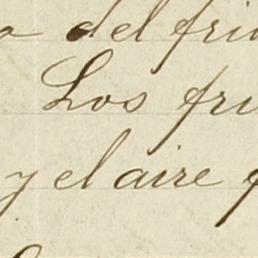 a del fri
Los fru
y el aire f